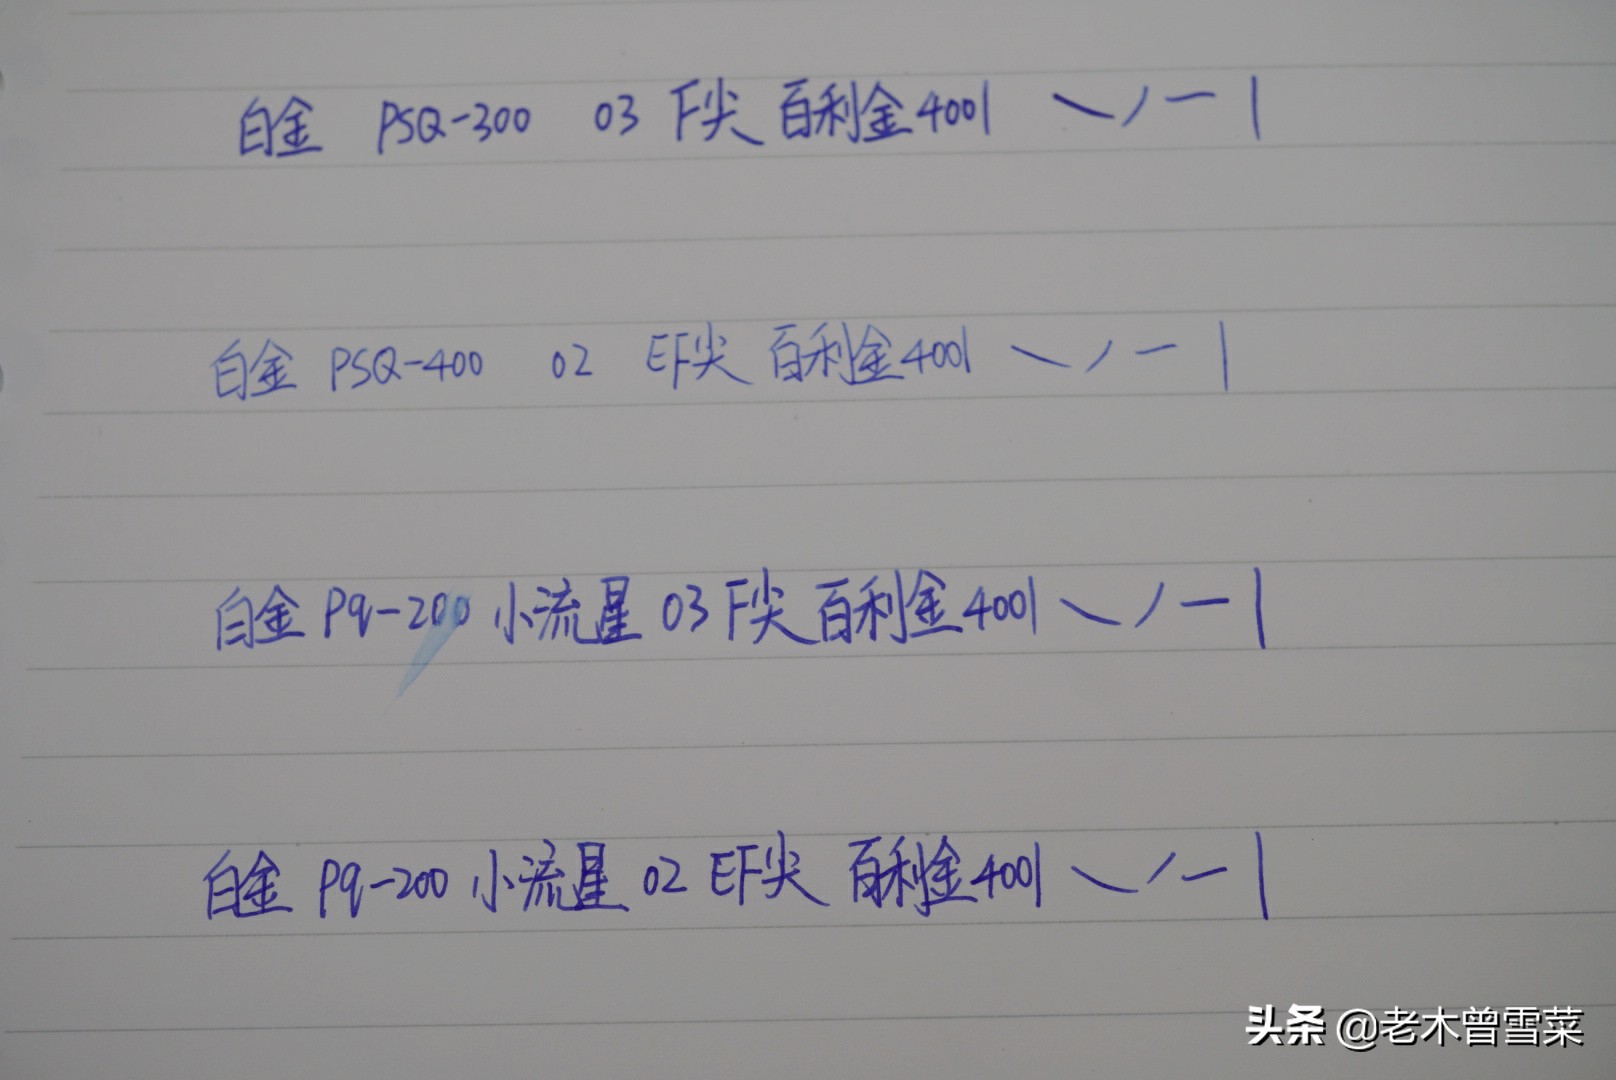 白金 PSQ-300 03 F尖 百利金4001 ㇏ノ一丨
白金 PSQ-400 02 EF尖 百利金4001 ㇏ノ一丨
白金 Pq-200 小流星 03 F尖 百利金4001 ㇏ノ一丨
白金 Pq-200 小流星 02 EF尖 百利金4001 ㇏ノ一丨
头条 @老木曾雪菜